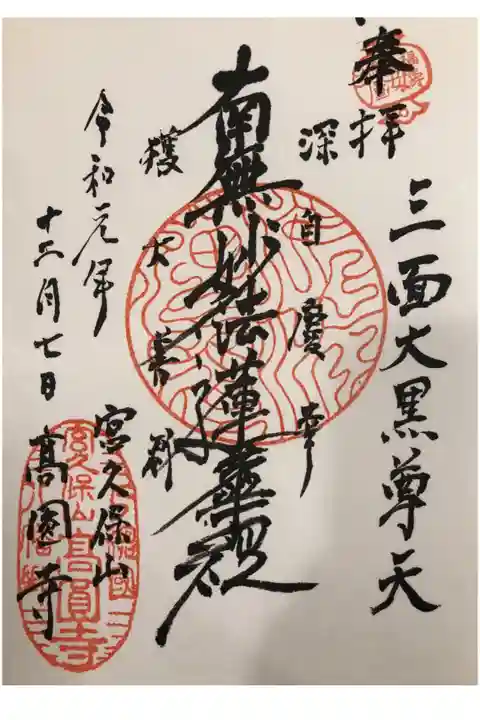 奉拝
三面大黒尊天
深自慶幸
南無妙法蓮華経
獲大善利
令和元年
十二月七日
宮久保山
高圓寺
宮久保山高圓寺